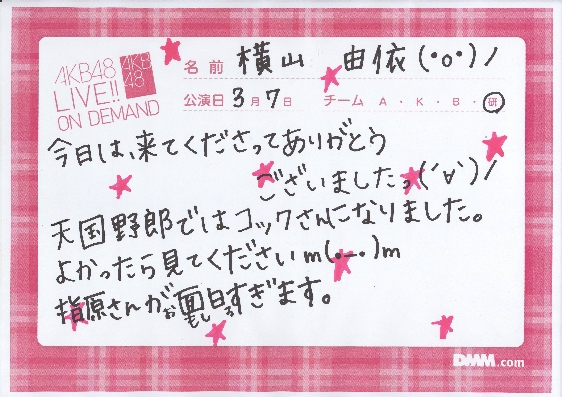 AKB48
LIVE!!
ON DEMAND
AKB
48
名前 横山 由依(・o・)ノ
公演日 3月7日 チーム A・K・B・研
今日は、来てくださってありがとう
ございましたっ(´∀`)ノ
天国野郎ではコックさんになりました。
よかったら見てくださいm(._.)m
指原さんが面白すぎます。
おもしろ
DMM.com